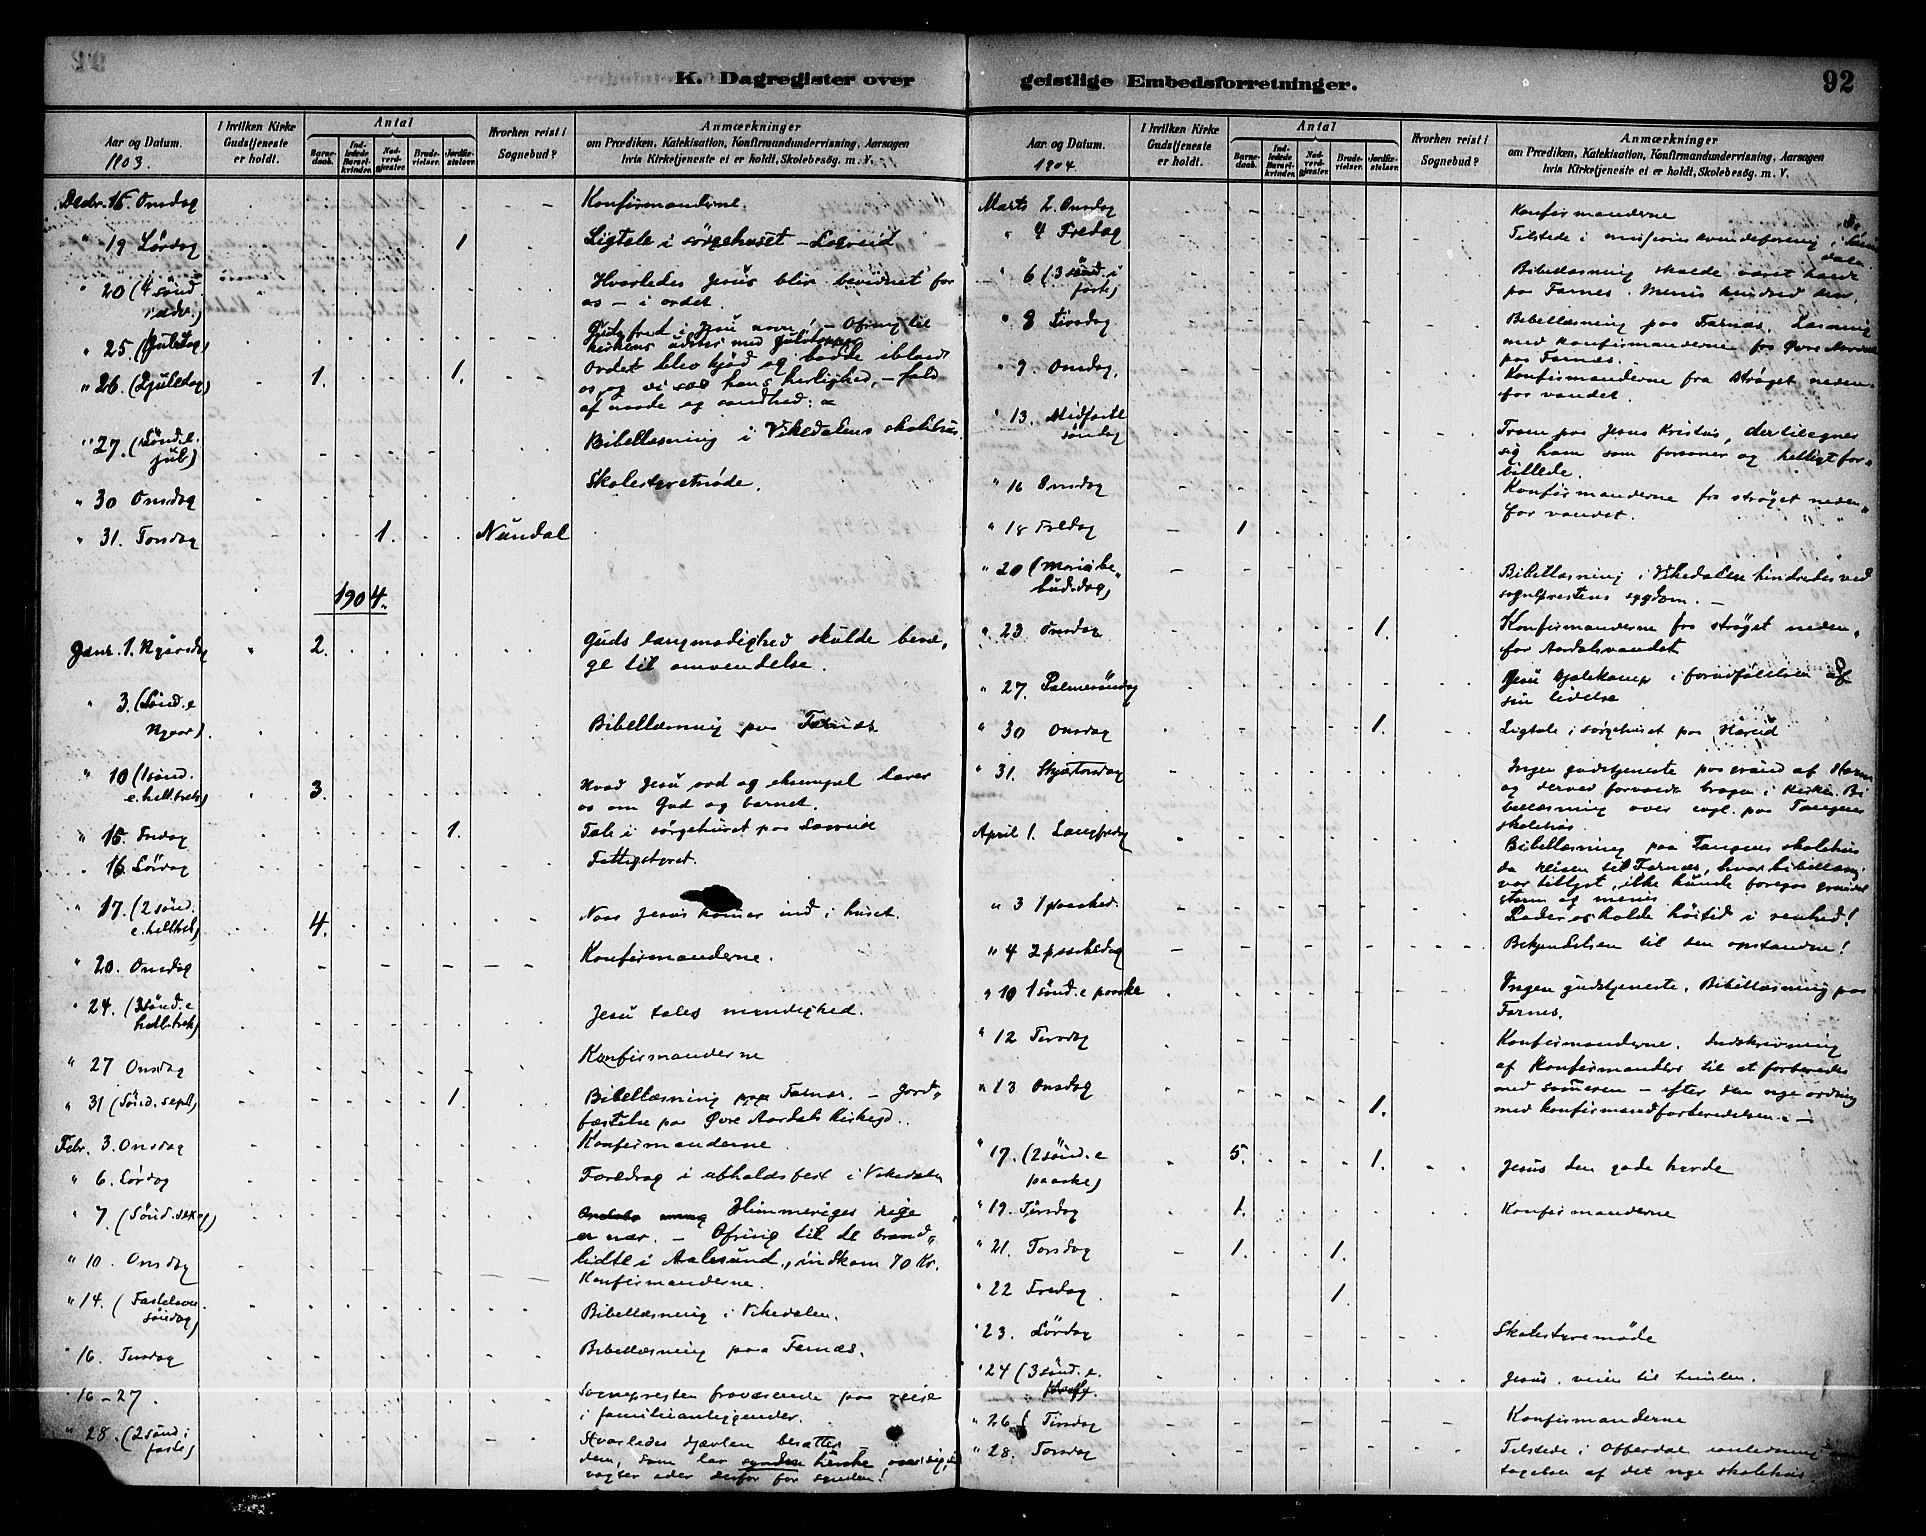 K. Dagregister over geistlige Embedsforretninger. 92
Aar og Datum. 1903.
I hvilken Kirke Gudstjeneste er holdt.
Antal
Barnedaab. Indledede Barselkvinder. Nadverdgjester. Brudevielser. Jordfæstelser.
Hvorhen reist i Sognebud?
Anmærkninger
om Prædiken, Katekisation, Konfirmandundervisning, Aarsagen
hvis Kirketjeneste ei er holdt, Skolebesøg. m. V.
Decbr. 16 Onsdag Konfirmanderne.
" 19 Lørdag 1 Ligtale i sørgehuset –
" 20 (4 sønd. i adv.) Hvorledes Jesus blir bevidnet for
os – i ordet.
" 25 (Juledag) Guds fred i Jesu navn! – Ofring til
kirkens
" 26 (2 juledag) 1. 1. Ordet blev kjød og bodde iblandt
os, og vi saa hans herlighed, – fuld
af naade og sandhed:
" 27. (Sønd. e. jul) Bibellæsning i Vikedalens skolehus.
" 30 Onsdag Skolestyremøde.
" 31. Torsdag 1. Nundal
1904.
Janr. 1. Nyaarsdag 2. Guds langmodighed skulde bevæ-
ge til omvendelse.
" 3. (Sønd. e Nyaar) Bibellæsning paa Farnæs
" 10 (1 sønd. e. hell. trek) 3. Hvad Jesu ord og eksempel lærer
os om Gud og barnet.
" 15. Fredag 1. Tale i sørgehuset paa
" 16. Lørdag Fattigstyret.
" 17. (2 sønd. e. helltrek) 4. Naar Jesus komer ind i huset.
" 20. Onsdag Konfirmanderne.
" 24. (3 sønd. e helltrek) Jesu tales myndighed.
" 27 Onsdag Konfirmanderne
" 31 (Sønd. sept) 1. Bibellæsning paa Farnæs. – Jord-
fæstelse paa Øvre Aardals kirkegd.
Febr. 3. Onsdag Konfirmanderne
" 6. Lørdag Foredrag i afholdsfest i Vikedalen
" 7. (Sønd. sex) Himmeriges rige
er nær. – Ofring til de brand-
lidte i Aalesund, indkom 70 Kr.
" 10. Onsdag Konfirmanderne.
" 14. (Fastelavns søndag) Bibellæsning i Vikedalen.
" 16. Tirsdag Bibellæsning paa Farnæs.
" 16 – 27. Sognepresten fraværende paa reise
i familieanliggender.
" 28. (2 sønd i faste) Hvorledes djævlen besætter
dem, som lar synden herske over sig,
vogter eder derfor for synden!
Aar og Datum. 1904.
I hvilken Kirke Gudstjeneste er holdt.
Antal
Barnedaab. Indledede Barselkvinder. Nadverdgjester. Brudevielser. Jordfæstelser.
Hvorhen reist i Sognebud?
Anmærkninger
om Prædiken, Katekisation, Konfirmandundervisning, Aarsagen
hvis Kirketjeneste ei er holdt, Skolebesøg. m. V.
Marts 2. Onsdag Konfirmanderne
" 4 Fredag Tilstede i misjonskvindeforening i
" 6 (3 sønd. i faste) Bibellæsning skulde været holdt
paa Farnes. Menis hindred den.
" 8 Tirsdag Bibellæsning paa Farnæs. Læsning
med konfirmanderne fra Øvre Aardal
paa Farnæs.
" 9. Onsdag. Konfirmanderne fra strøget neden-
for vandet.
" 13. Midfaste søndag Troen paa Jesus Kristus, der tilegner
sig ham som forsoner og helligt for-
billede.
" 16 Onsdag Konfirmanderne fra strøget neden-
for vandet.
" 18 Fredag 1
" 20 (Mariæ be-budsdag) Bibellæsning i Vikedalen hindredes ved
sogneprestens sygdom. –
" 23 Onsdag 1. Konfirmanderne fra strøget neden-
for Aardalsvandet
" 27. Palmesøndag Jesu sjælekamp i forudfølelsen af
sin lidelse
" 30 Onsdag 1. Ligtale i sørgehuset paa
" 31. Skjærtorsdag Ingen gudstjeneste paa grund af storm
og derved forvoldt bragen i kirken. Bi
bellæsning over evgl. paa Tangens
skolehus.
April 1. Langfredag Bibellæsning paa Tangens skolehus
da reisen til Farnæs, hvor bibellæsn.
var tillyst, ikke kunde foregaa grundet
storm og menis
" 3 1 paasked. Lader os holde høitid i renhed!
" 4 2 paaskedag Bekjendelsen til den opstandne!
" 10 1 sønd. e paaske Ingen gudstjeneste. Bibellæsning paa
Farnes.
" 12 Tirsdag Konfirmanderne. Indskrivning
af Konfirmander til at forberedes
" 13 Onsdag 1. med someren – efter den nye ordning
med konfirmandforberedelsen. –
" 17. (2 sønd. e paaske) 5. 1. Jesus den gode hyrde
" 19. Tirsdag 1. Konfirmanderne
" 21. Torsdag 1. 1.
" 22 Fredag 1.
" 23. Lørdag Skolestyremøde
" 24 (3 sønd. e. Jesus, veien til himlen.
" 26 Tirsdag Konfirmanderne
" 28. Torsdag Tilstede i Offerdal
af det nye skolehus.